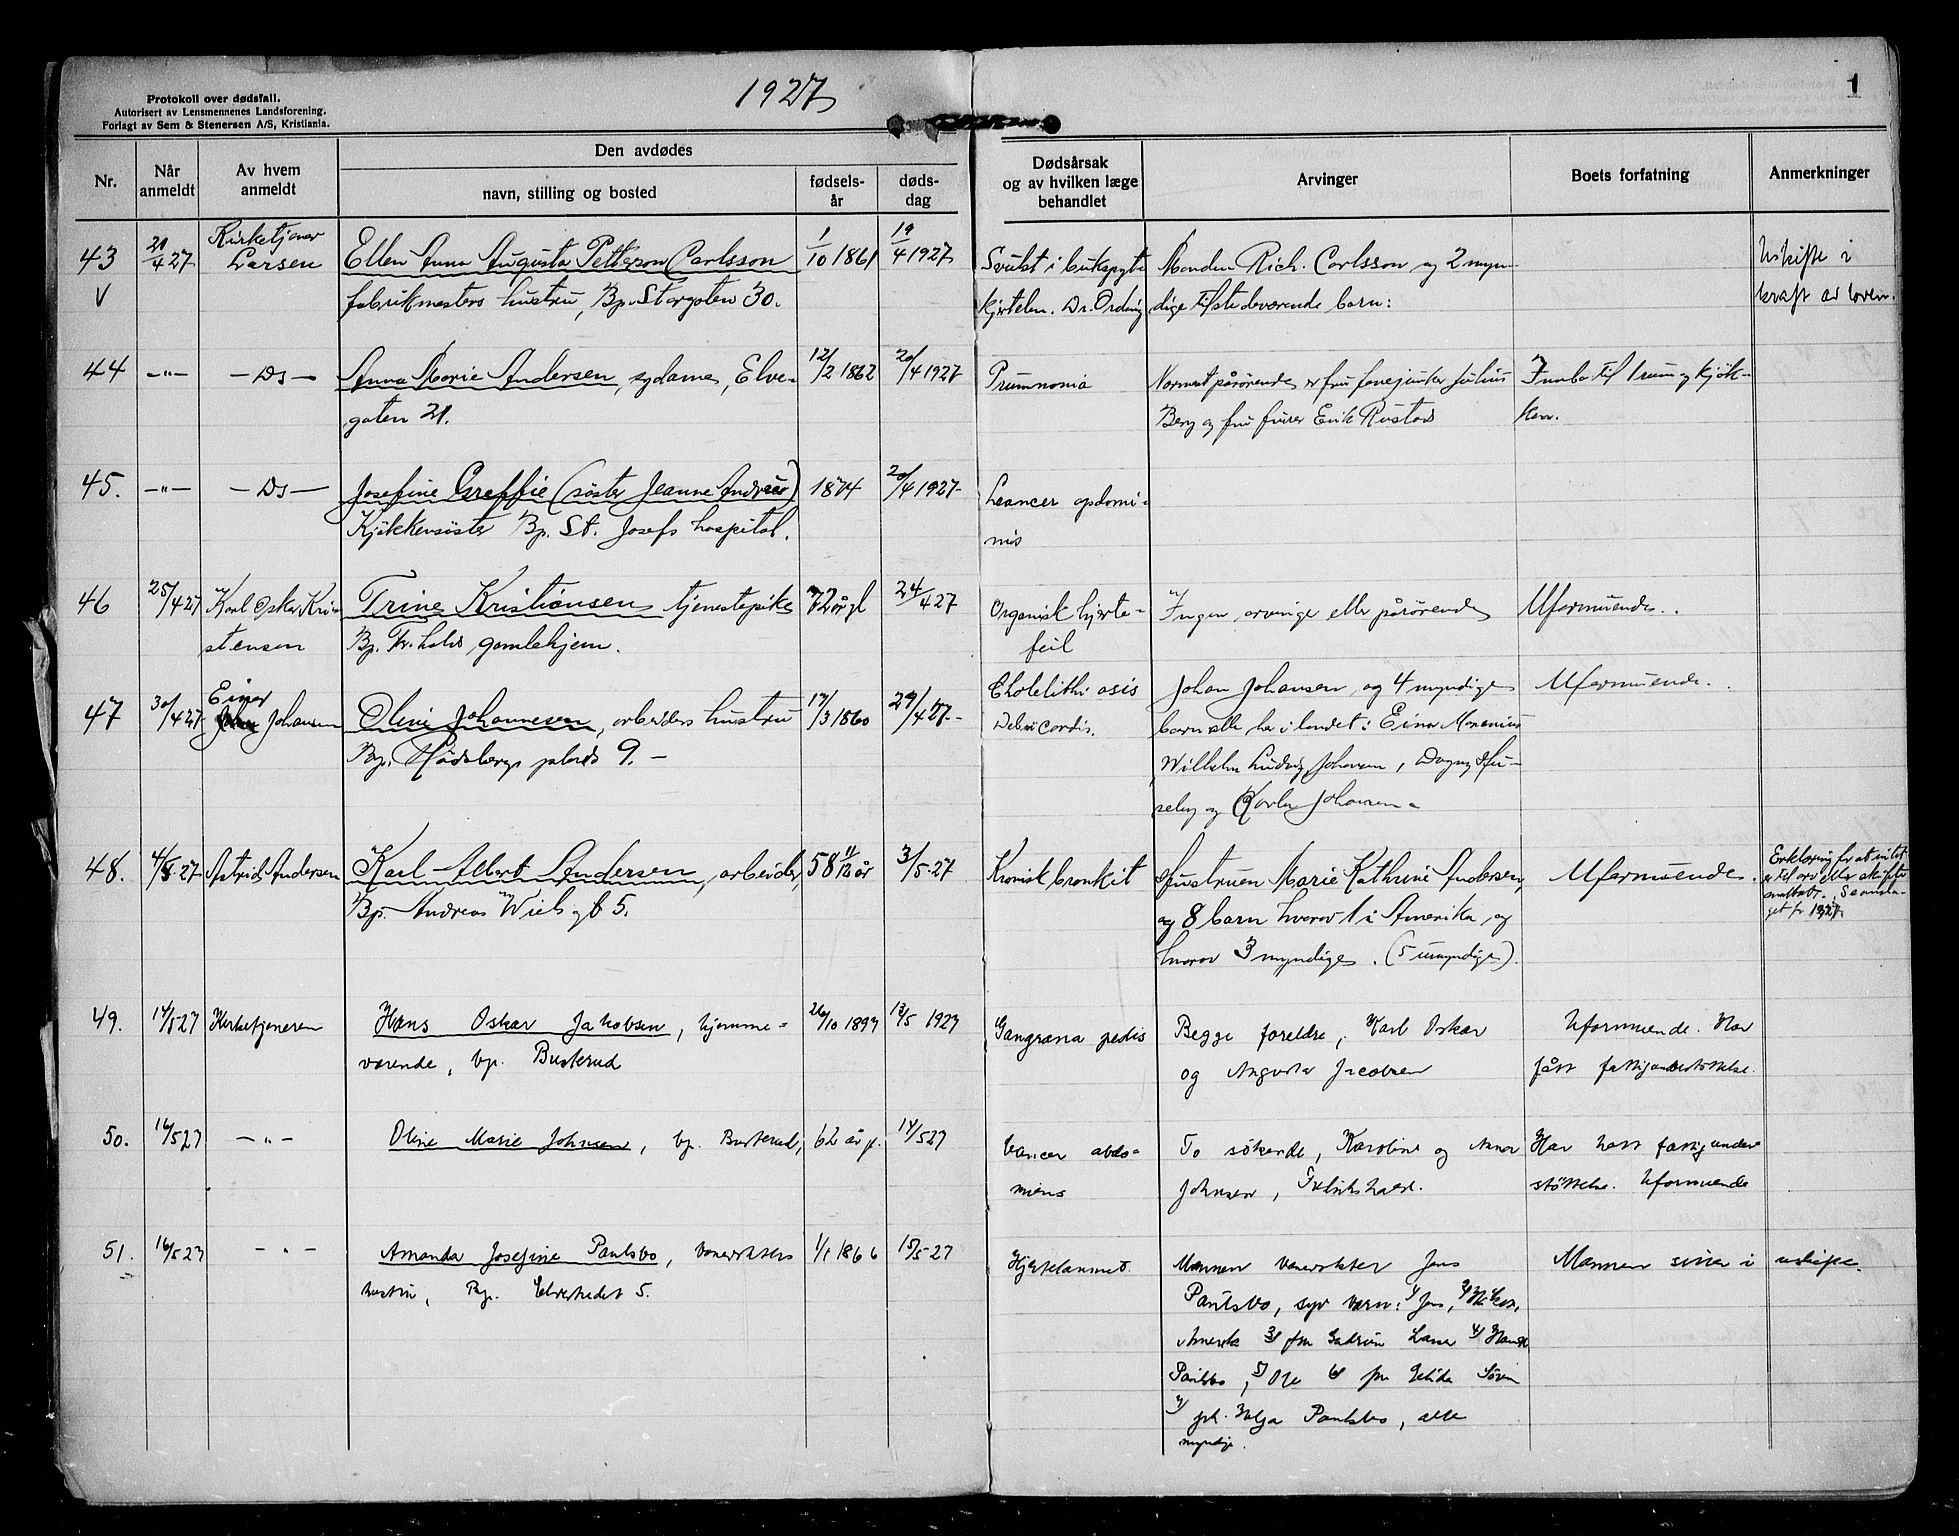 1927
1
Protokoll over dødsfall.
Autorisert av Lensmennenes Landsforening.
Forlagt av Sem & Stenersen A/S, Kristiania.
Nr.
Når anmeldt
Av hvem anmeldt
Den avdødes
navn, stilling og bosted
fødsels-år
døds-dag
Dødsårsak og av hvilken læge behandlet
Arvinger
Boets forfatning
Anmerkninger
43 21/4 27 Kirketjener Larsen
Ellen Anna Augusta Petterson Carlsson 1/10 1861 19/4 1927
fabrikmesters hustru, Bp. Storgaten 30.
Svulst i bukspyt-
kjertelen. Dr. Ording
Manden Rich. Carlsson og 2 myn-
dige tilstedeværende barn:
Uskifte i
kraft av loven.
44 -"- - Ds -
Anna Marie Andersen, sydame, Elve- 12/2 1862 20/4 1927
gaten 21.
Nærmest pårørende er fru fanejunker Julius
Berg og fru furer Erik Rustad
Innbo til 1 rum og kjøk-
ken.
45. -"- - Ds -
Josefine Greffie (søster Jeanne Andreé) 1874 20/4 1927
Kjøkkensøster Bp. St. Josefs hospital.
46 25/4 27 Karl Oskar Kri-
stensen
Trine Kristiansen tjenestepike 72 år gl 24/4 27
Bp. Fr.halds gamlehjem.
Organisk hjerte-
feil
Ingen arvinge eller pårørende
Uformuende.
47 30/4 27 Einar Johansen
Oline Johannesen, arbeiders hustru 17/3 1860 29/4 27
Bp. Rødsbergs plads 9.
Cholelithiasis
Johan Johansen og 4 myndige
barn alle her i landet: Einar
Wilhelm Ludvig Johansen, Dagny
og Karla Johansen
Uformuende.
48. 4/5 27 Astrid Andersen
Karl Albert Andersen, arbeider, 58 11/12 år 3/5 27
Bp. Andreas Wiels gt 5.
Kronisk bronkit
Hustruen Marie Kathrine Andersen,
og 8 barn hvorav 1 i Amerika og
hvorav 3 myndige. (5 umyndige).
Uformuende.
Erklæring for at intet
er til arv eller skifte
get fr 1927
49. 14/5 27 Kirketjeneren
Hans Oskar Jakobsen, hjemme- 26/10 1897 13/5 1927
værende, bp. Busterud
Gangræna pedis
Begge foreldre, Karl Oskar
og Augusta Jacobsen
Uformuende. Har
fått fattigunderstøttelse.
50. 16/5 27 -"-
Oline Marie Johnsen, bp. Busterud, 62 år g. 14/5 27
Cancer abdo-
miens
To søkende, Karoline og Anna
Johnsen, Fredrikshald.
Har hatt fattigunder
støttelse. Uformuende
51. 16/5 27 -"-
Amanda Josefine Paulsbo, banevokters 1/1 1866 15/5 27
hustru, Bp. Elvestredet 5.
Hjertelammet.
Mannen banevokter Jens
Paulsbo, syv barn: 1/ Jens, 2/ Håkon,
Amerika 3/ fru Gudrun Larsen 4/
Paulsbo, 5/ Ole 6/ fru
7/ frk. Helga Paulsbo, alle
myndige.
Mannen sitter i uskifte.